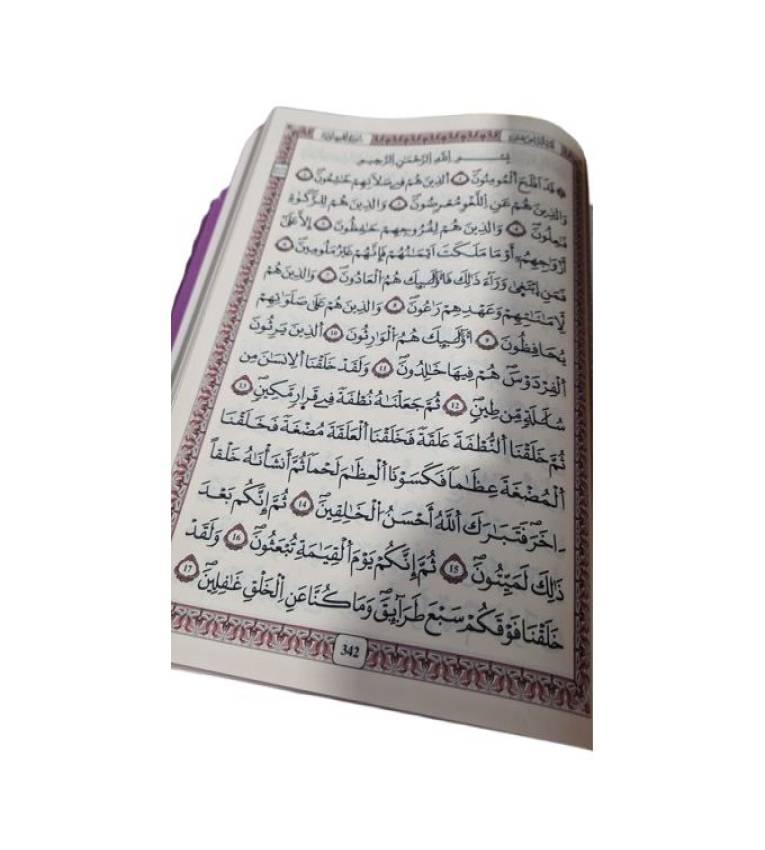 بِسْمِ اِللَّهِ اِلرَّحْمَٰنِ اِلرَّحِيمِ
قَدَ اَفْلَحَ اَلْمُومِنُونَ 1 اَلذِينَ هُمْ فِے صَلَاتِهِمْ خَٰشِعُونَ 2
وَالذِينَ هُمْ عَنِ اِللَّغْوِ مُعْرِضُونَ 3 وَالذِينَ هُمْ لِلزَّكَوٰةِ
فَٰعِلُونَ 4 وَالذِينَ هُمْ لِفُرُوجِهِمْ حَٰفِظُونَ 5 إِلَّا عَلَىٰ
أَزْوَٰجِهِمُۥ أَوْ مَا مَلَكَتَ اَيْمَٰنُهُمْ فَإِنَّهُمْ غَيْرُ مَلُومِينَ 6
فَمَنِ اِبْتَغَىٰ وَرَآءَ ذَٰلِكَ فَأُوْلَٰٓئِكَ هُمُ اُلْعَادُونَ 7 وَالذِينَ هُمْ
لِأَمَٰنَٰتِهِمْ وَعَهْدِهِمْ رَٰعُونَ 8 وَالذِينَ هُمْ عَلَىٰ صَلَوَٰتِهِمْ
يُحَافِظُونَ 9 أُوْلَٰٓئِكَ هُمُ اُلْوَٰرِثُونَ 10 اَلذِينَ يَرِثُونَ
اَلْفِرْدَوْسَ هُمْ فِيهَا خَٰلِدُونَ 11 وَلَقَدْ خَلَقْنَا اَلِانسَٰنَ مِن
سُلَٰلَةٍ مِّن طِينٍ 12 ثُمَّ جَعَلْنَٰهُ نُطْفَةً فِے قَرَارٍ مَّكِينٍ 13
ثُمَّ خَلَقْنَا اَلنُّطْفَةَ عَلَقَةً فَخَلَقْنَا اَلْعَلَقَةَ مُضْغَةً فَخَلَقْنَا
اَلْمُضْغَةَ عِظَٰماً فَكَسَوْنَا اَلْعِظَٰمَ لَحْماً ثُمَّ أَنشَأْنَٰهُ خَلْقاً
ـاخَرَ فَتَبَٰرَكَ اَللَّهُ أَحْسَنُ اُلْخَٰلِقِينَ 14 ثُمَّ إِنَّكُم بَعْدَ
ذَٰلِكَ لَمَيِّتُونَ 15 ثُمَّ إِنَّكُمْ يَوْمَ اَلْقِيَٰمَةِ تُبْعَثُونَ 16 وَلَقَدْ
خَلَقْنَا فَوْقَكُمْ سَبْعَ طَرَآئِقَ وَمَا كُنَّا عَنِ اِلْخَلْقِ غَٰفِلِينَ 17
342